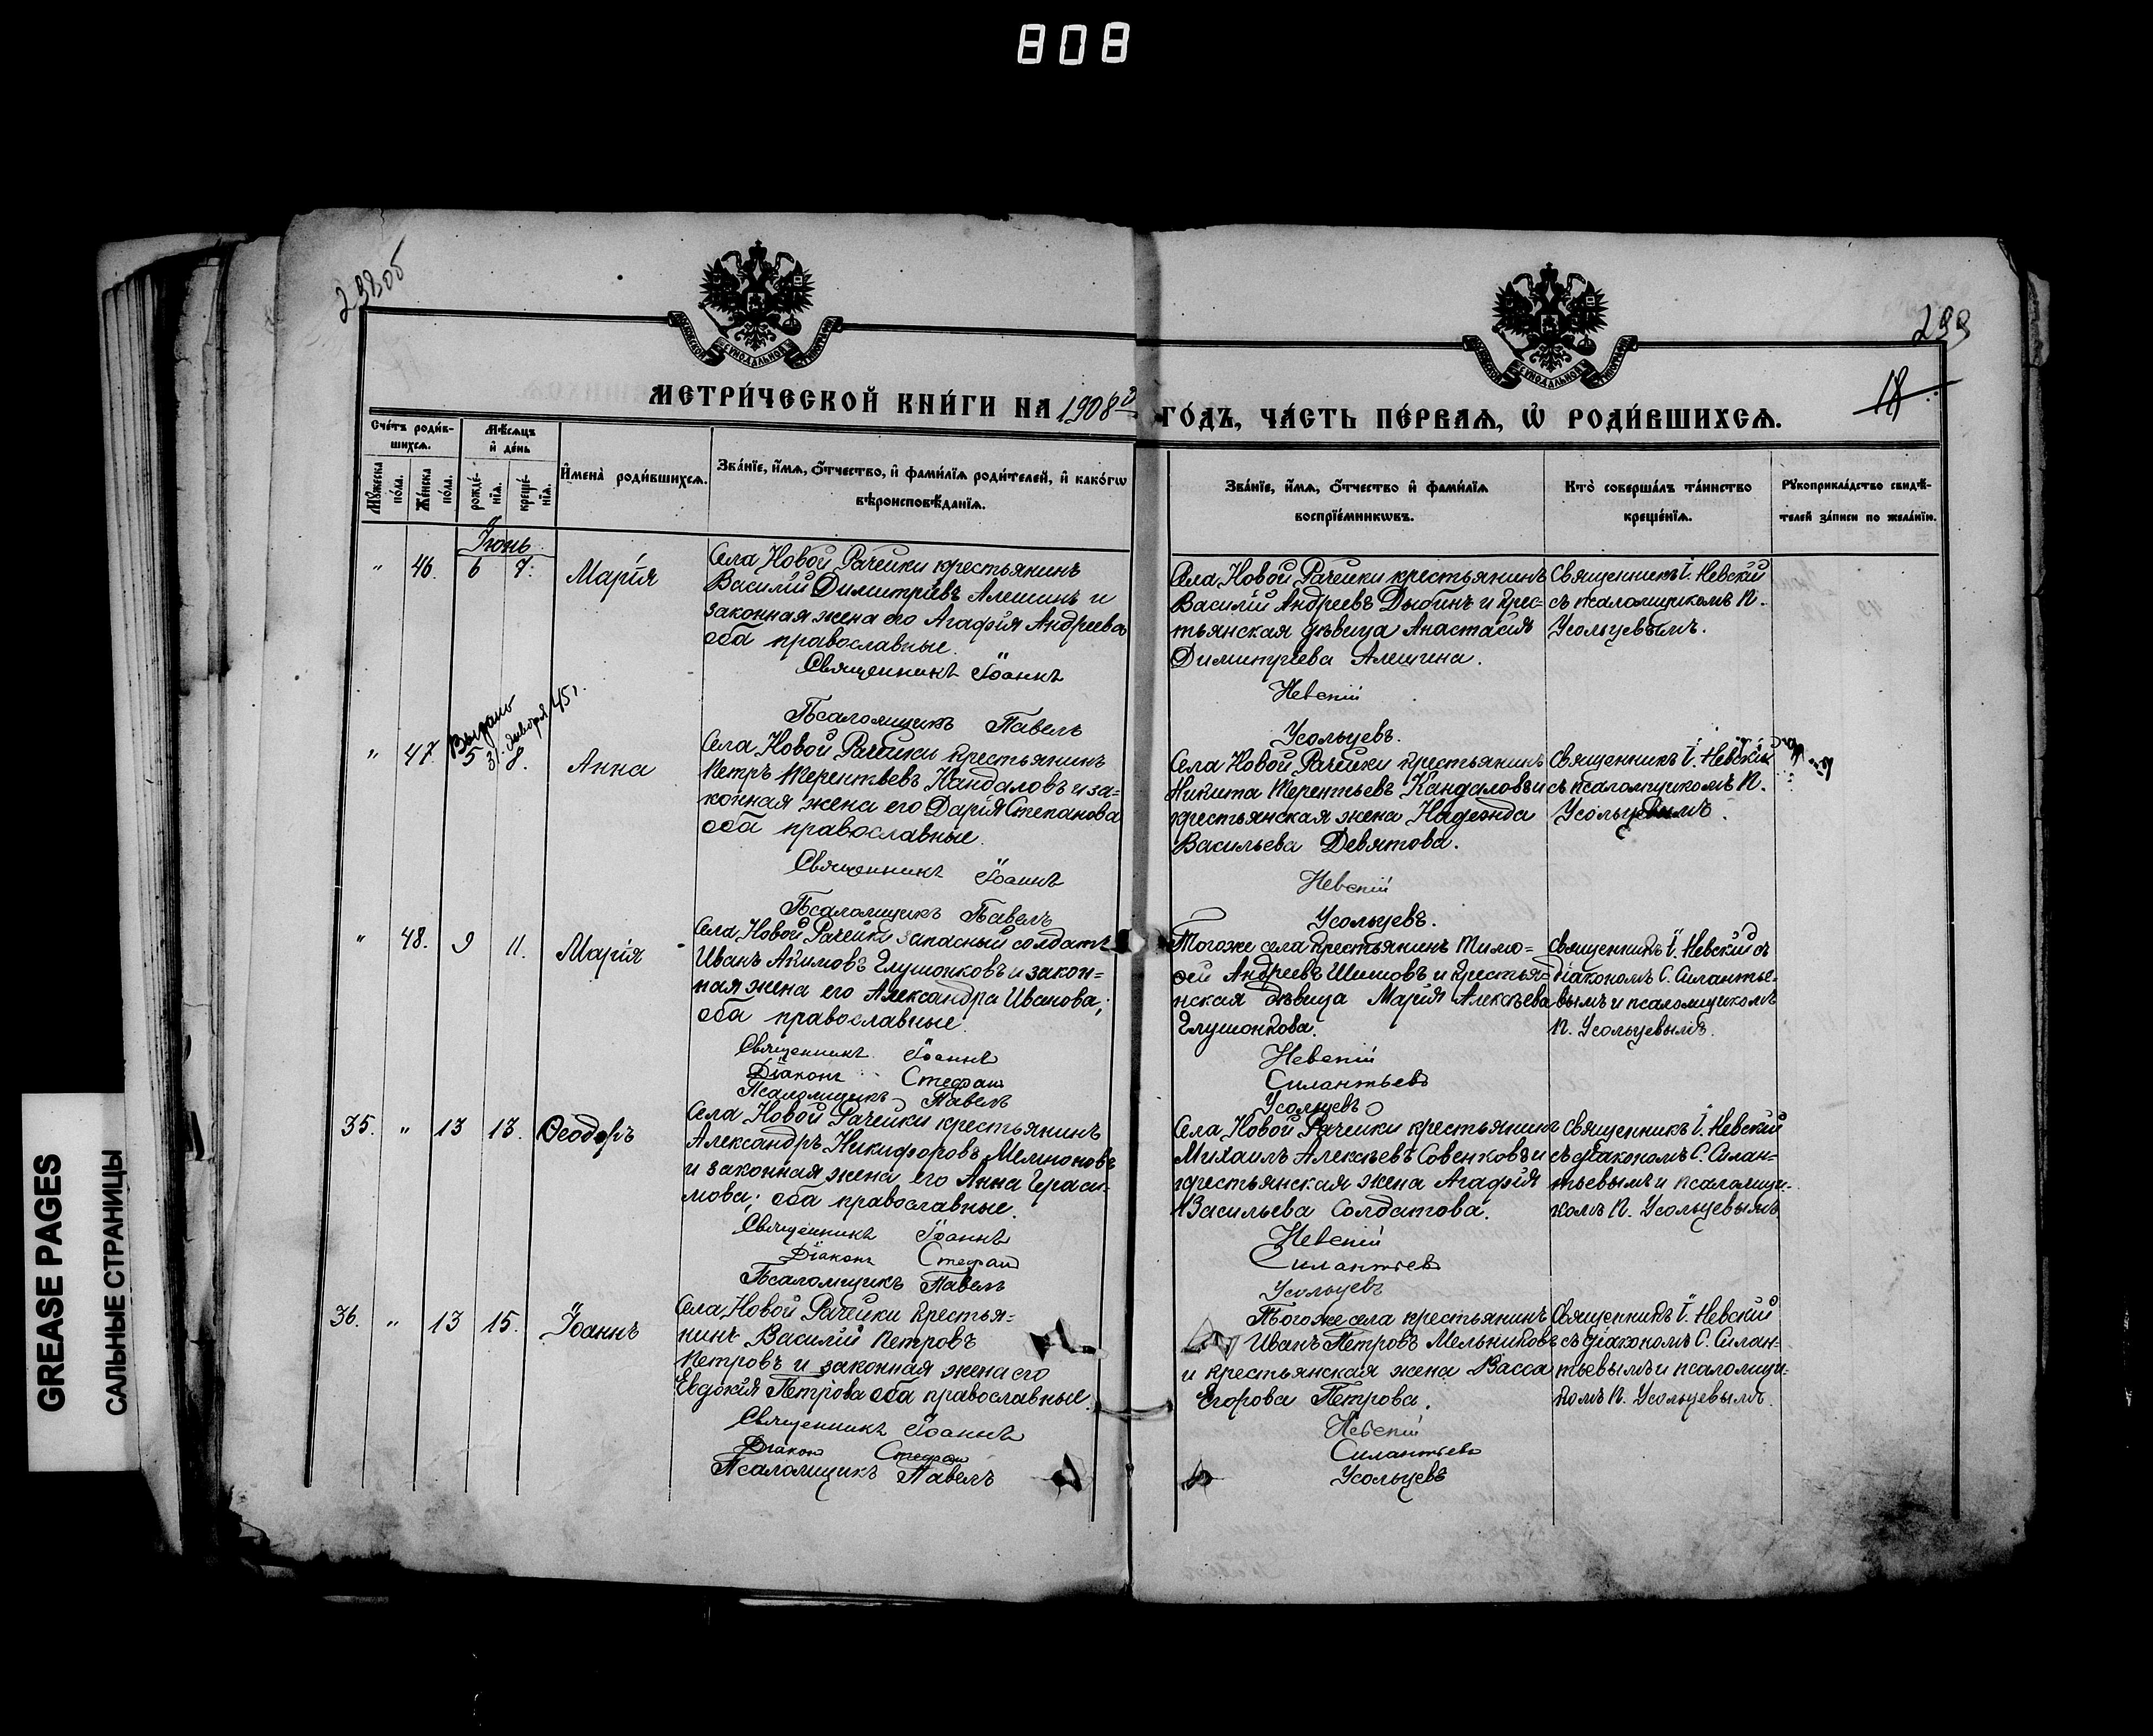 808
298об
299
18
МЕТРИ́ЧЕСКОЙ КНИ́ГИ НА 1908й ГО́ДЪ, ЧА́СТЬ ПЕ́РВАѦ, Ѡ҆ РОДИ́ВШИХСѦ.
Сче́тъ роди́в-
шихсѧ.
Мꙋ́жеска по́ла.
Же́нска по́ла.
Мѣ́сѧцъ
и҆ де́нь
рожде́-
нїѧ.
креще́-
нїѧ.
И҆мена̀ роди́вшихсѧ.
Зва́нїе, и҆́мѧ, ѻ҆́тчество, и҆ фами́лїѧ роди́телей, и҆ како́гѡ
вѣроисповѣ́данїѧ.
Зва́нїе, и҆́мѧ, ѻ҆́тчество и҆ фами́лїѧ
воспрїе́мникѡвъ.
Кто̀ соверша́лъ та́инство
креще́нїѧ.
Рꙋкоприкла́дство свидѣ́-
телей за́писи по жела́нїю.
Іюнь
" 46. 6 7. Марія
Села Новой Рачейки крестьянинъ
Василій Димитріевъ Алешинъ и
законная жена его Агафія Андреева
оба православные.
Священникъ Іоаннъ
Псаломщикъ Павелъ
Села Новой Рачейки крестьянинъ
Василій Андреевъ Дыбинъ и крес-
тьянская дѣвица Анастасія
Димитріева Алешина.
Невскій
Усольцевъ.
Священникъ І. Невскій
съ псаломщикомъ П.
Усольцевымъ.
Выдано
31. января 45г.
" 47. 5 8. Анна
Села Новой Рачейки крестьянинъ
Петръ Терентьевъ Кандаловъ и за-
конная жена его Дарія Степанова
оба православные.
Священникъ Іоаннъ
Псаломщикъ Павелъ
Села Новой Рачейки крестьянинъ
Никита Терентьевъ Кандаловъ и
крестьянская жена Надежда
Васильева Девятова.
Невскій
Усольцевъ.
Священникъ І. Невскій
съ псаломщикомъ П.
Усольцевымъ.
" 48. 9 11. Марія
Села Новой Рачейки запасный солдатъ
Иванъ Акимовъ Глушонковъ и закон-
ная жена его Александра Иванова;
оба православные.
Священникъ Іоаннъ
Діаконъ Стефанъ
Псаломщикъ Павелъ
Тогоже села крестьянинъ Тимо-
ѳей Андреевъ Шишовъ и крестья-
нская дѣвица Марія Алексѣева
Глушонкова.
Невскій
Силантьевъ
Усольцевъ
Священникъ І. Невскій съ
діакономъ С. Силантье-
вымъ и псаломщикомъ
П. Усольцевымъ.
35. " 13 13. Ѳеодоръ
Села Новой Рачейки крестьянинъ
Александръ Никифоровъ
и законная жена его Анна Гераси-
мова; оба православные.
Священникъ Іоаннъ
Діаконъ Стефанъ
Псаломщикъ Павелъ
Села Новой Рачейки крестьянинъ
Михаилъ Алексѣевъ Совенковъ и
крестьянская жена Агафія
Васильева Солдатова.
Невскій
Силантьевъ
Усольцевъ
Священникъ І. Невскій
съ діакономъ С. Силан-
тьевымъ и псаломщи-
комъ П. Усольцевымъ
36. " 13 15. Іоаннъ
Села Новой Рачейки крестья-
нинъ Василій Петровъ
Петровъ и законная жена его
Евдокія Петрова оба православные.
Священникъ Іоаннъ
Діаконъ Стефанъ
Псаломщикъ Павелъ
Тогоже села крестьянинъ
Иванъ Петровъ Мельниковъ
и крестьянская жена Васса
Егорова Петрова.
Невскій
Силантьевъ
Усольцевъ
Священникъ І. Невскій
съ діакономъ С. Силан-
тьевымъ и псаломщи-
комъ П. Усольцевымъ.
GREASE PAGES
САЛЬНЫЕ СТРАНИЦЫ